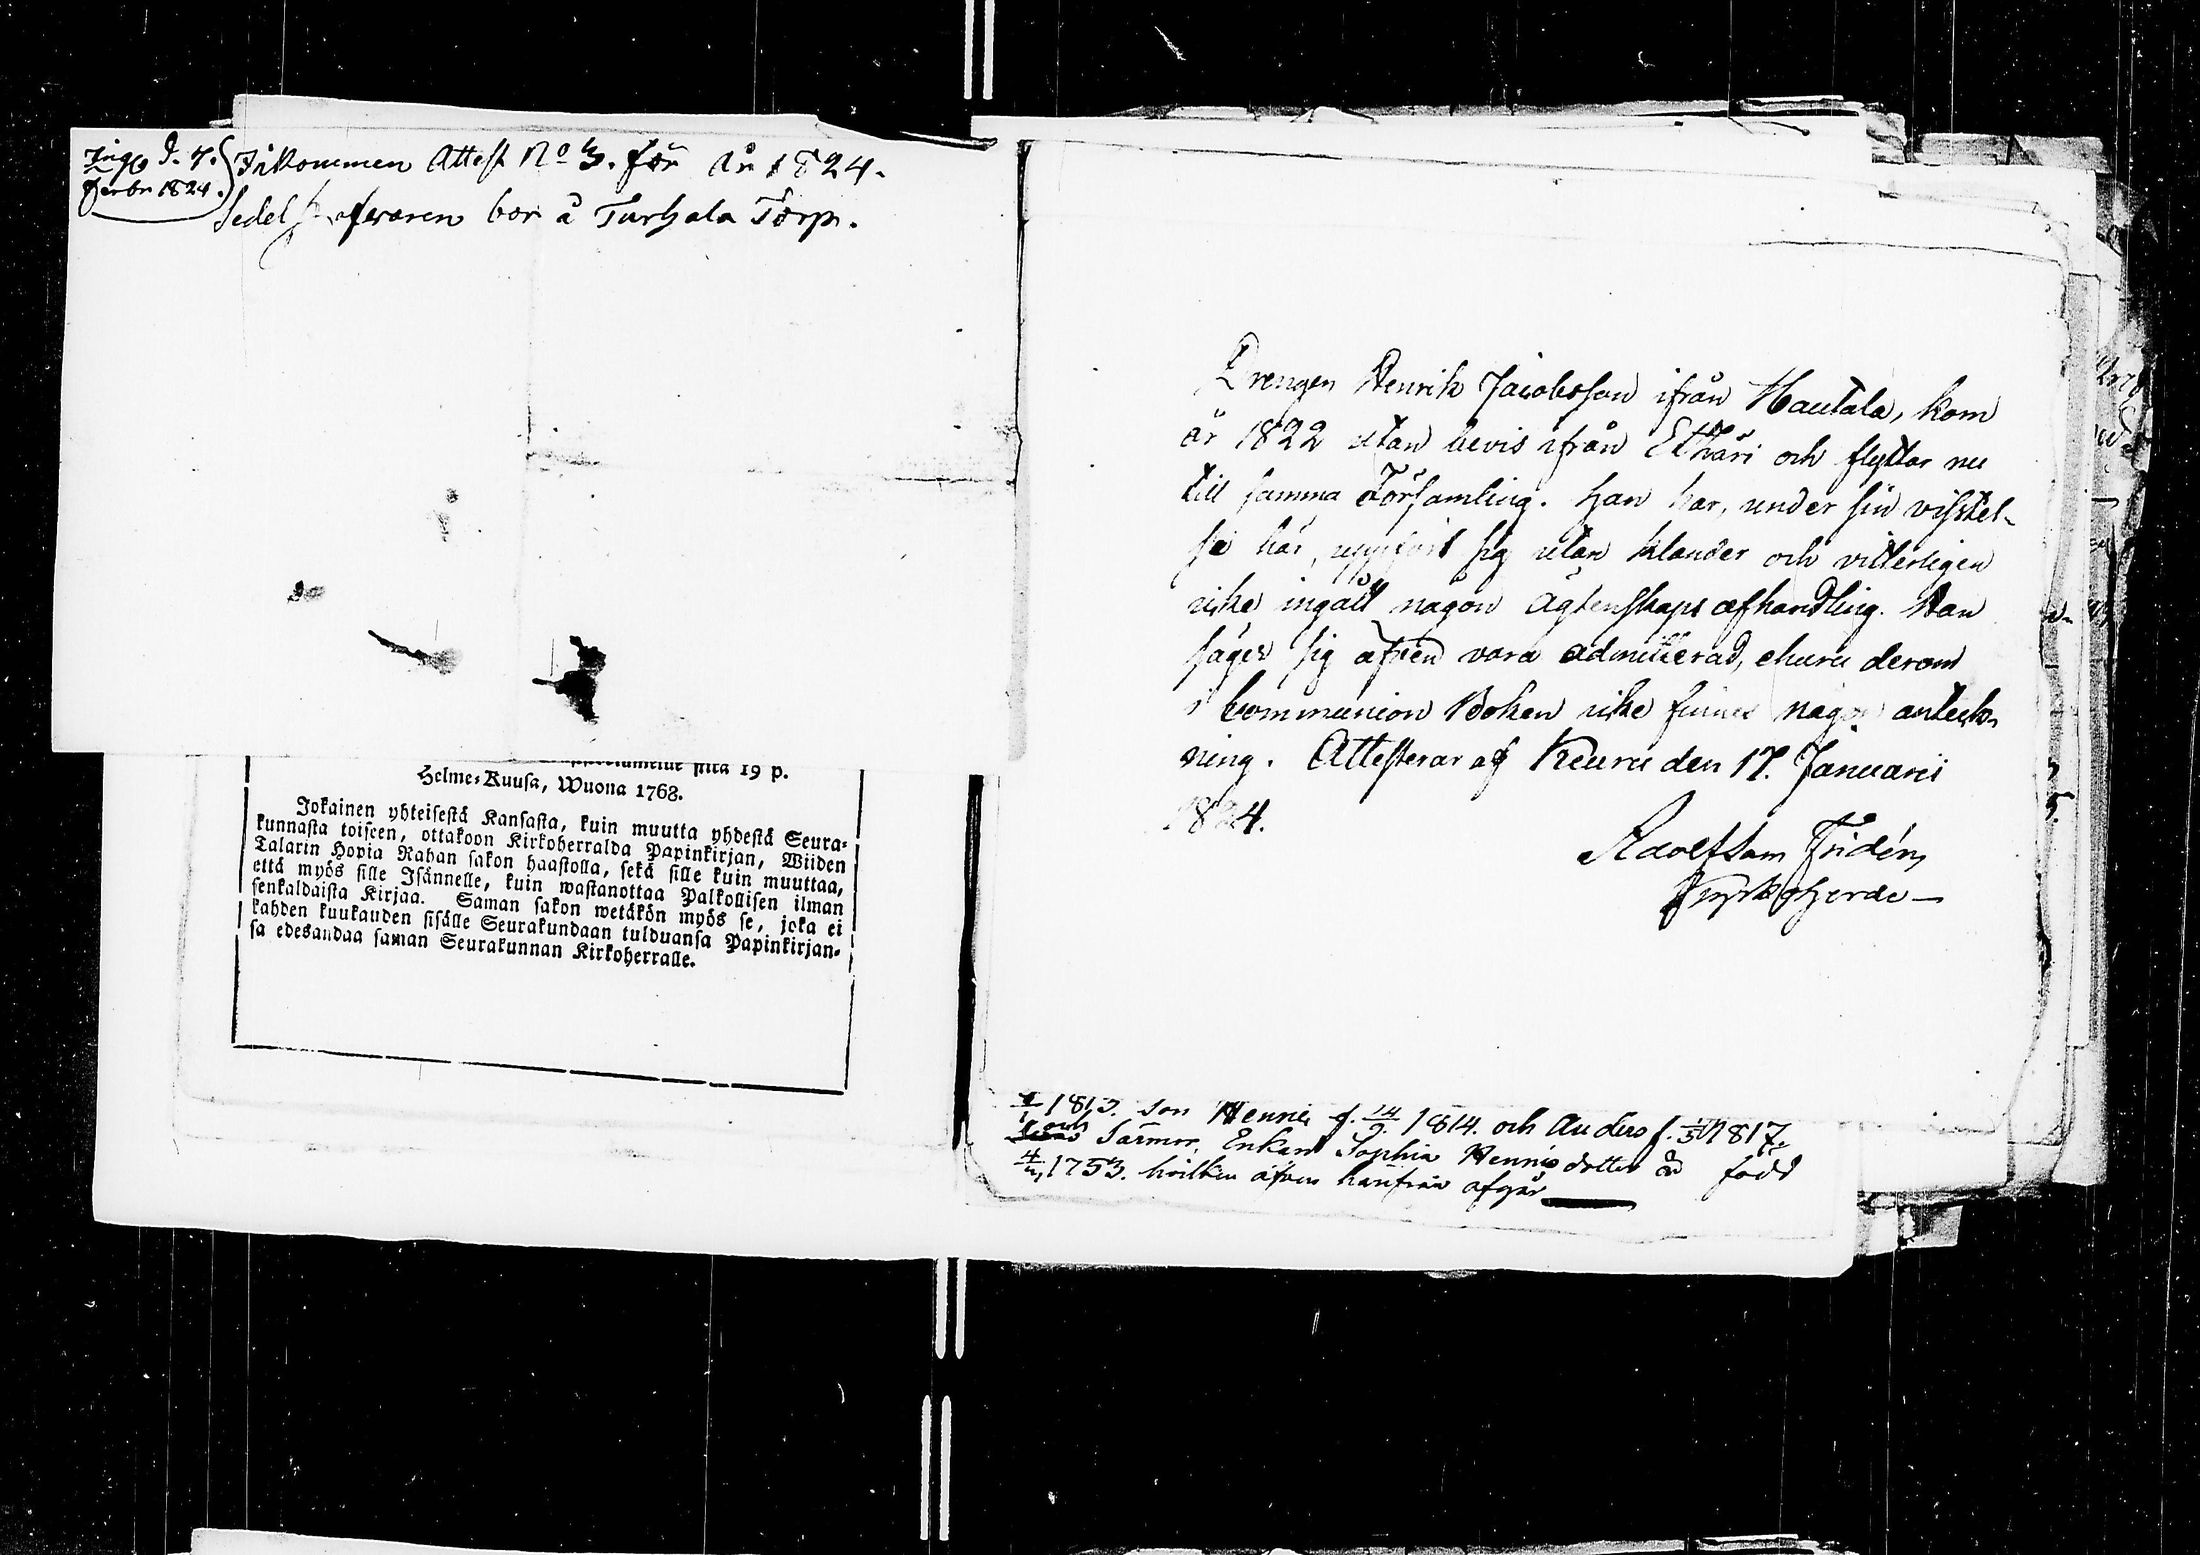 Ing. d. 7.
Febr 1824.
Inkommen Attest No 3. för År 1824.
Sedel hafvaren bor å Turhala Torp.
19 p.
Helme-Kuusa, Wuona 1763.
Jokainen yhteisestä Kansasta, kuin muutta yhdestä Seura-
kunnasta toiseen, ottakoon Kirkoherralda Papinkirjan, Wiiden
Talarin Hopia Rahan sakon haastolla, sekä sille kuin muuttaa,
että myös sille Isännelle, kuin wastanottaa Palkollisen ilman
senkaldaista Kirjaa. Saman sakon wetäkön myös se, joka ei
kahden kuukauden sisälle Seurakundaan tulduansa Papinkirjan-
sa edesandaa saman Seurakunnan Kirkoherralle.
Drengen Henrik Jacobsson ifrån Hautala, kom
år 1822 utan bevis ifrån Ethäri och flyttar nu
till samma Församling. Han har, under sin vistel-
se här, uppfört sig utan klander och vitterligen
icke ingått någon ägtenskaps afhandling. Han
säger sig äfven vara admitterad, ehuru derom
i Communion Boken icke finnes någon anteck-
ning. Attesterar af Keuru den 17. Januarii
1824.
Adolf Sam Fridén,
Kyrkoherde
1813. son Henric f. 14/9. 1814. och Anders f. 1817.
och Svärmor, Enkan Sophia Henricsdotter är född
1753. hvilken äfven härifrån afgår